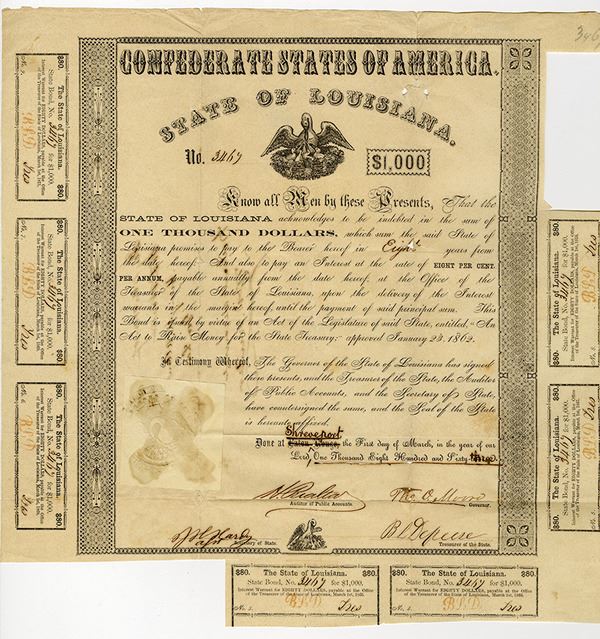 346
CONFEDERATE STATES OF AMERICA.
STATE OF LOUISIANA.
No. 3467
$1,000
Know all Men by these Presents, That the
STATE OF LOUISIANA acknowledges to be indebted in the sum of
ONE THOUSAND DOLLARS, which sum the said State of
Louisiana promises to pay to the Bearer hereof in Eight years from
the date hereof. And also to pay an Interest at the rate of EIGHT PER CENT.
PER ANNUM, payable annually from the date hereof, at the Office of the
Treasurer of the State of Louisiana, upon the delivery of the Interest
warrants in the margin hereof, until the payment of said principal sum. This
Bond is issued by virtue of an Act of the Legislature of said State, entitled, "An
Act to Raise Money for the State Treasury:" approved January 23, 1862.
In Testimony Whereof, The Governor of the State of Louisiana has signed
these presents, and the Treasurer of the State, the Auditor
of Public Accounts, and the Secretary of State,
have countersigned the same, and the Seal of the State
is hereunto affixed.
Shreveport
Done at Baton Rouge, the First day of March, in the year of our
Lord, One Thousand Eight Hundred and Sixty-three
Auditor of Public Accounts.
Tho O. Moore
Governor.
Hardy
Secretary of State.
B L Defreese
Treasurer of the State.
$80. The State of Louisiana. $80.
State Bond, No. 3467 for $1,000.
Interest Warrant for EIGHTY DOLLARS, payable at the Office
of the Treasurer of the State of Louisiana, March 1st,
B.L.D. Tres
$80. The State of Louisiana. $80.
State Bond, No. 3467 for $1,000.
Interest Warrant for EIGHTY DOLLARS, payable at the Office
of the Treasurer of the State of Louisiana, March 1st,
B.L.D. Tres
$80. The State of Louisiana. $80.
State Bond, No. 3467 for $1,000.
Interest Warrant for EIGHTY DOLLARS, payable at the Office
of the Treasurer of the State of Louisiana, March 1st,
B.L.D. Tres
$80. The State of Louisiana. $80.
State Bond, No. 3467 for $1,000.
Interest Warrant for EIGHTY DOLLARS, payable at the Office
of the Treasurer of the State of Louisiana, March 1st,
B.L.D. Tres
$80. The State of Louisiana. $80.
State Bond, No. 3467 for $1,000.
Interest Warrant for EIGHTY DOLLARS, payable at the Office
of the Treasurer of the State of Louisiana, March 1st,
B.L.D. Tres
$80. The State of Louisiana. $80.
State Bond, No. 3467 for $1,000.
Interest Warrant for EIGHTY DOLLARS, payable at the Office
of the Treasurer of the State of Louisiana, March 1st,
B.L.D. Tres
$80. The State of Louisiana. $80.
State Bond, No. 3467 for $1,000.
Interest Warrant for EIGHTY DOLLARS, payable at the Office
of the Treasurer of the State of Louisiana, March 1st,
B.L.D. Tres